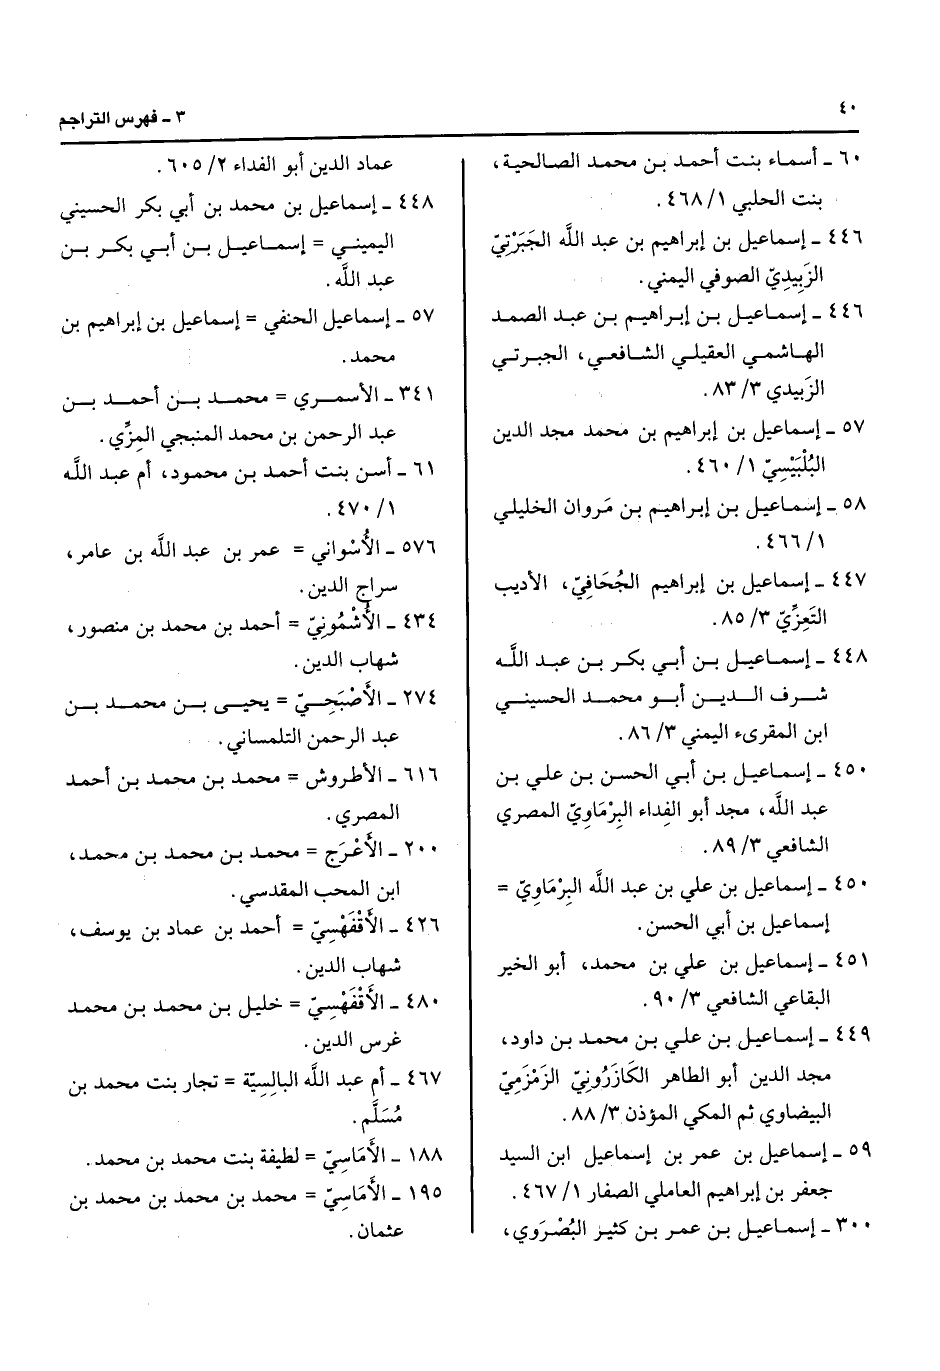 ٤٠
٣ ـ فهرس التراجم
٦٠ ـ أسماء بنت أحمد بن محمد الصالحية،
بنت الحلبي ١/ ٤٦٨.
٤٤٦ ـ إسماعيل بن إبراهيم بن عبد الله الجَبَرْتِيّ
الزَبِيدِيّ الصوفي اليمني.
٤٤٦ ـ إسماعيل بن إبراهيم بن عبد الصمد
الهاشمي العقيلي الشافعي، الجبرتي
الزَبيدي ٣/ ٨٣.
٥٧ ـ إسماعيل بن إبراهيم بن محمد مجد الدين
البُلْبَيْسِيّ ١/ ٤٦٠.
٥٨ ـ إسماعيل بن إبراهيم بن مَروان الخليلي
١/ ٤٦٦.
٤٤٧ ـ إسماعيل بن إبراهيم الجُحَافِيّ، الأديب
التَعِزِّيّ ٣/ ٨٥.
٤٤٨ ـ إسماعيل بن أبي بكر بن عبد اللَّه
شرف الدين أبو محمد الحسيني
ابن المقرىء اليمني ٣/ ٨٦.
٤٥٠ ـ إسماعيل بن أبي الحسن بن علي بن
عبد اللَّه، مجد أبو الفِداء البِرْمَاوِيّ المصري
الشافعي ٣/ ٨٩.
٤٥٠ ـ إسماعيل بن علي بن عبد اللَّه البِرْمَاوِيّ =
إسماعيل بن أبي الحسن.
٤٥١ ـ إسماعيل بن علي بن محمد، أبو الخير
البقاعي الشافعي ٣/ ٩٠.
٤٤٩ ـ إسماعيل بن علي بن محمد بن داود،
مجد الدين أبو الطاهر الكَازَرُونِيّ الزَمْزَمِيّ
البيضاوي ثم المكي المؤذن ٣/ ٨٨.
٥٩ ـ إسماعيل بن عمر بن إسماعيل ابن السيد
جعفر بن إبراهيم العاملي الصفار ١/ ٤٦٧.
٣٠٠ ـ إسماعيل بن عمر بن كثير البُصْرَوي،
عماد الدين أبو الفداء ٢/ ٦٠٥.
٤٤٨ ـ إسماعيل بن محمد بن أبي بكر الحسيني
اليميني = إسماعيل بن أبي بكر بن
عبد اللَّه.
٥٧ ـ إسماعيل الحنفي = إسماعيل بن إبراهيم بن
محمد.
٣٤١ ـ الأسمري = محمد بن أحمد بن
عبد الرحمن بن محمد المنبجي المِزِّي.
٦١ ـ أسن بنت أحمد بن محمود، أم عبد اللَّه
١/ ٤٧٠.
٥٧٦ ـ الأُسْواني = عمر بن عبد اللَّه بن عامر،
سراج الدين.
٤٣٤ ـ الأُشْمُونِيّ = أحمد بن محمد بن منصور،
شهاب الدين.
٢٧٤ ـ الأَصْبَحِيّ = يحيى بن محمد بن
عبد الرحمن التلمساني.
٦١٦ ـ الأطروش = محمد بن محمد بن أحمد
المصري.
٢٠٠ ـ الأَعْرَج = محمد بن محمد بن محمد،
ابن المحب المقدسي.
٤٢٦ ـ الأَقْفَهْسِيّ = أحمد بن عماد بن يوسف،
شهاب الدين.
٤٨٠ ـ الأَقْفَهْسِيّ = خليل بن محمد بن محمد
غرس الدين.
٤٦٧ ـ أم عبد اللَّه البالِسِيَّة = تجار بنت محمد بن
مُسَلَّم.
١٨٨ ـ الأَمَاسِيّ = لطيفة بنت محمد بن محمد.
١٩٥ ـ الأَمَاسِيّ = محمد بن محمد بن محمد بن
عثمان.